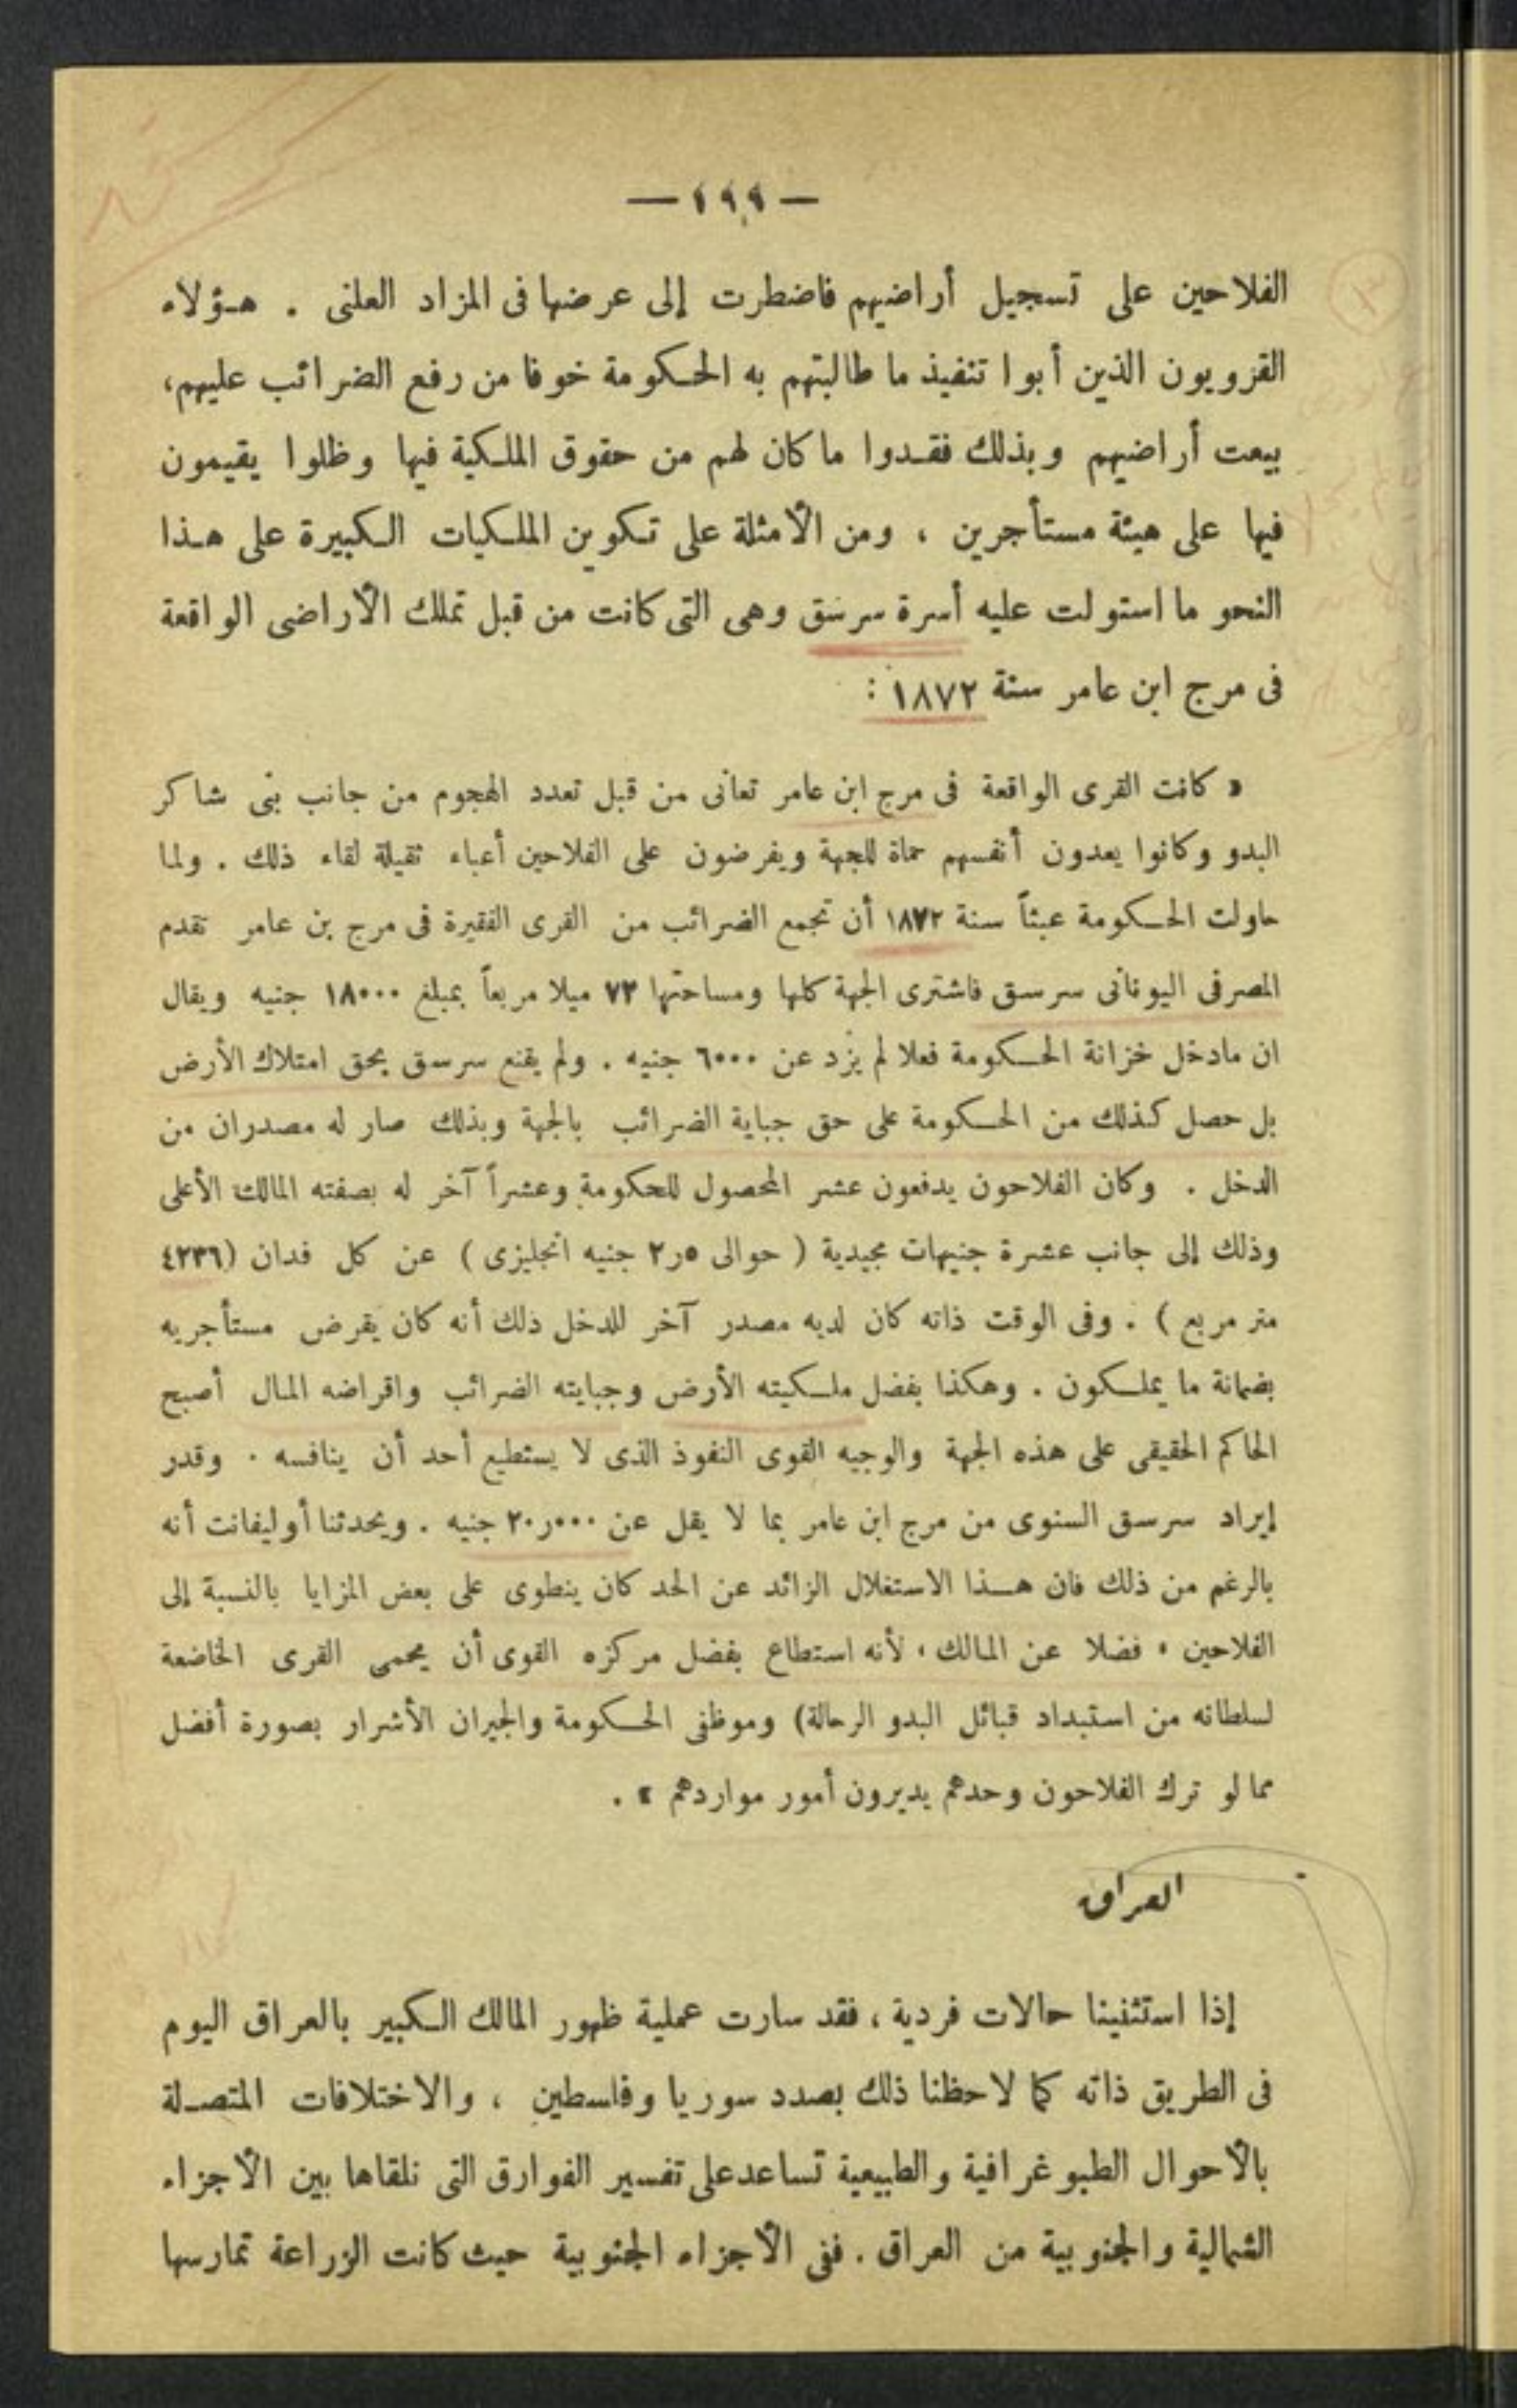 — ١٩٩ —
الفلاحين على تسجيل أراضيهم فاضطرت إلى عرضها فى المزاد العلنى . هؤلاء
القزويون الذين أبوا تنفيذ ما طالبتهم به الحكومة خوفا من رفع الضرائب عليهم،
بيعت أراضيهم وبذلك فقدوا ما كان لهم من حقوق الملكية فيها وظلوا يقيمون
فيها على هيئة مستأجرين ، ومن الأمثلة على تكوين الملكيات الكبيرة على هذا
النحو ما استولت عليه أسرة سرسق وهى التى كانت من قبل تملك الأراضى الواقعة
فى مرج ابن عامر سنة ١٨٧٢ :
« كانت القرى الواقعة فى مرج ابن عامر تعانى من قبل تعدد الهجوم من جانب بنى شاكر
البدو وكانوا يعدون أنفسهم حماة للجهة ويفرضون على الفلاحين أعباء ثقيلة لقاء ذلك . ولما
حاولت الحكومة عبثاً سنة ١٨٧٢ أن تجمع الضرائب من القرى الفقيرة فى مرج بن عامر تقدم
المصرفى اليونانى سرسق فاشترى الجهة كلها ومساحتها ٧٢ ميلا مربعاً بمبلغ ١٨٠٠٠ جنيه ويقال
ان مادخل خزانة الحكومة فعلا لم يزد عن ٦٠٠٠ جنيه . ولم يقنع سرسق بحق امتلاك الأرض
بل حصل كذلك من الحكومة على حق جباية الضرائب بالجهة وبذلك صار له مصدران من
الدخل . وكان الفلاحون يدفعون عشر المحصول للحكومة وعشراً آخر له بصفته المالك الأعلى
وذلك إلى جانب عشرة جنيهات مجيدية ( حوالى ٢٫٥ جنيه انجليزى ) عن كل فدان (٤٢٣٦
متر مربع ) . وفى الوقت ذاته كان لديه مصدر آخر للدخل ذلك أنه كان يقرض مستأجريه
بضمانة ما يملكون . وهكذا بفضل ملكيته الأرض وجبايته الضرائب واقراضه المال أصبح
الحاكم الحقيقى على هذه الجهة والوجيه القوى النفوذ الذى لا يستطيع أحد أن ينافسه . وقدر
إيراد سرسق السنوى من مرج ابن عامر بما لا يقل عن ٢٠٫٠٠٠ جنيه . ويحدثنا أوليفانت أنه
بالرغم من ذلك فان هذا الاستغلال الزائد عن الحد كان ينطوى على بعض المزايا بالنسبة إلى
الفلاحين ، فضلا عن المالك ، لأنه استطاع بفضل مركزه القوى أن يحمى القرى الخاضعة
لسلطانه من استبداد قبائل البدو الرحالة) وموظفى الحكومة والجيران الأشرار بصورة أفضل
مما لو ترك الفلاحون وحدهم يديرون أمور مواردهم » .
العراق
إذا استثنينا حالات فردية ، فقد سارت عملية ظهور المالك الكبير بالعراق اليوم
فى الطريق ذاته كما لاحظنا ذلك بصدد سوريا وفلسطين ، والاختلافات المتصلة
بالأحوال الطبوغرافية والطبيعية تساعد على تفسير الفوارق التى نلقاها بين الأجزاء
الشمالية والجنوبية من العراق . ففى الأجزاء الجنوبية حيث كانت الزراعة تمارسها